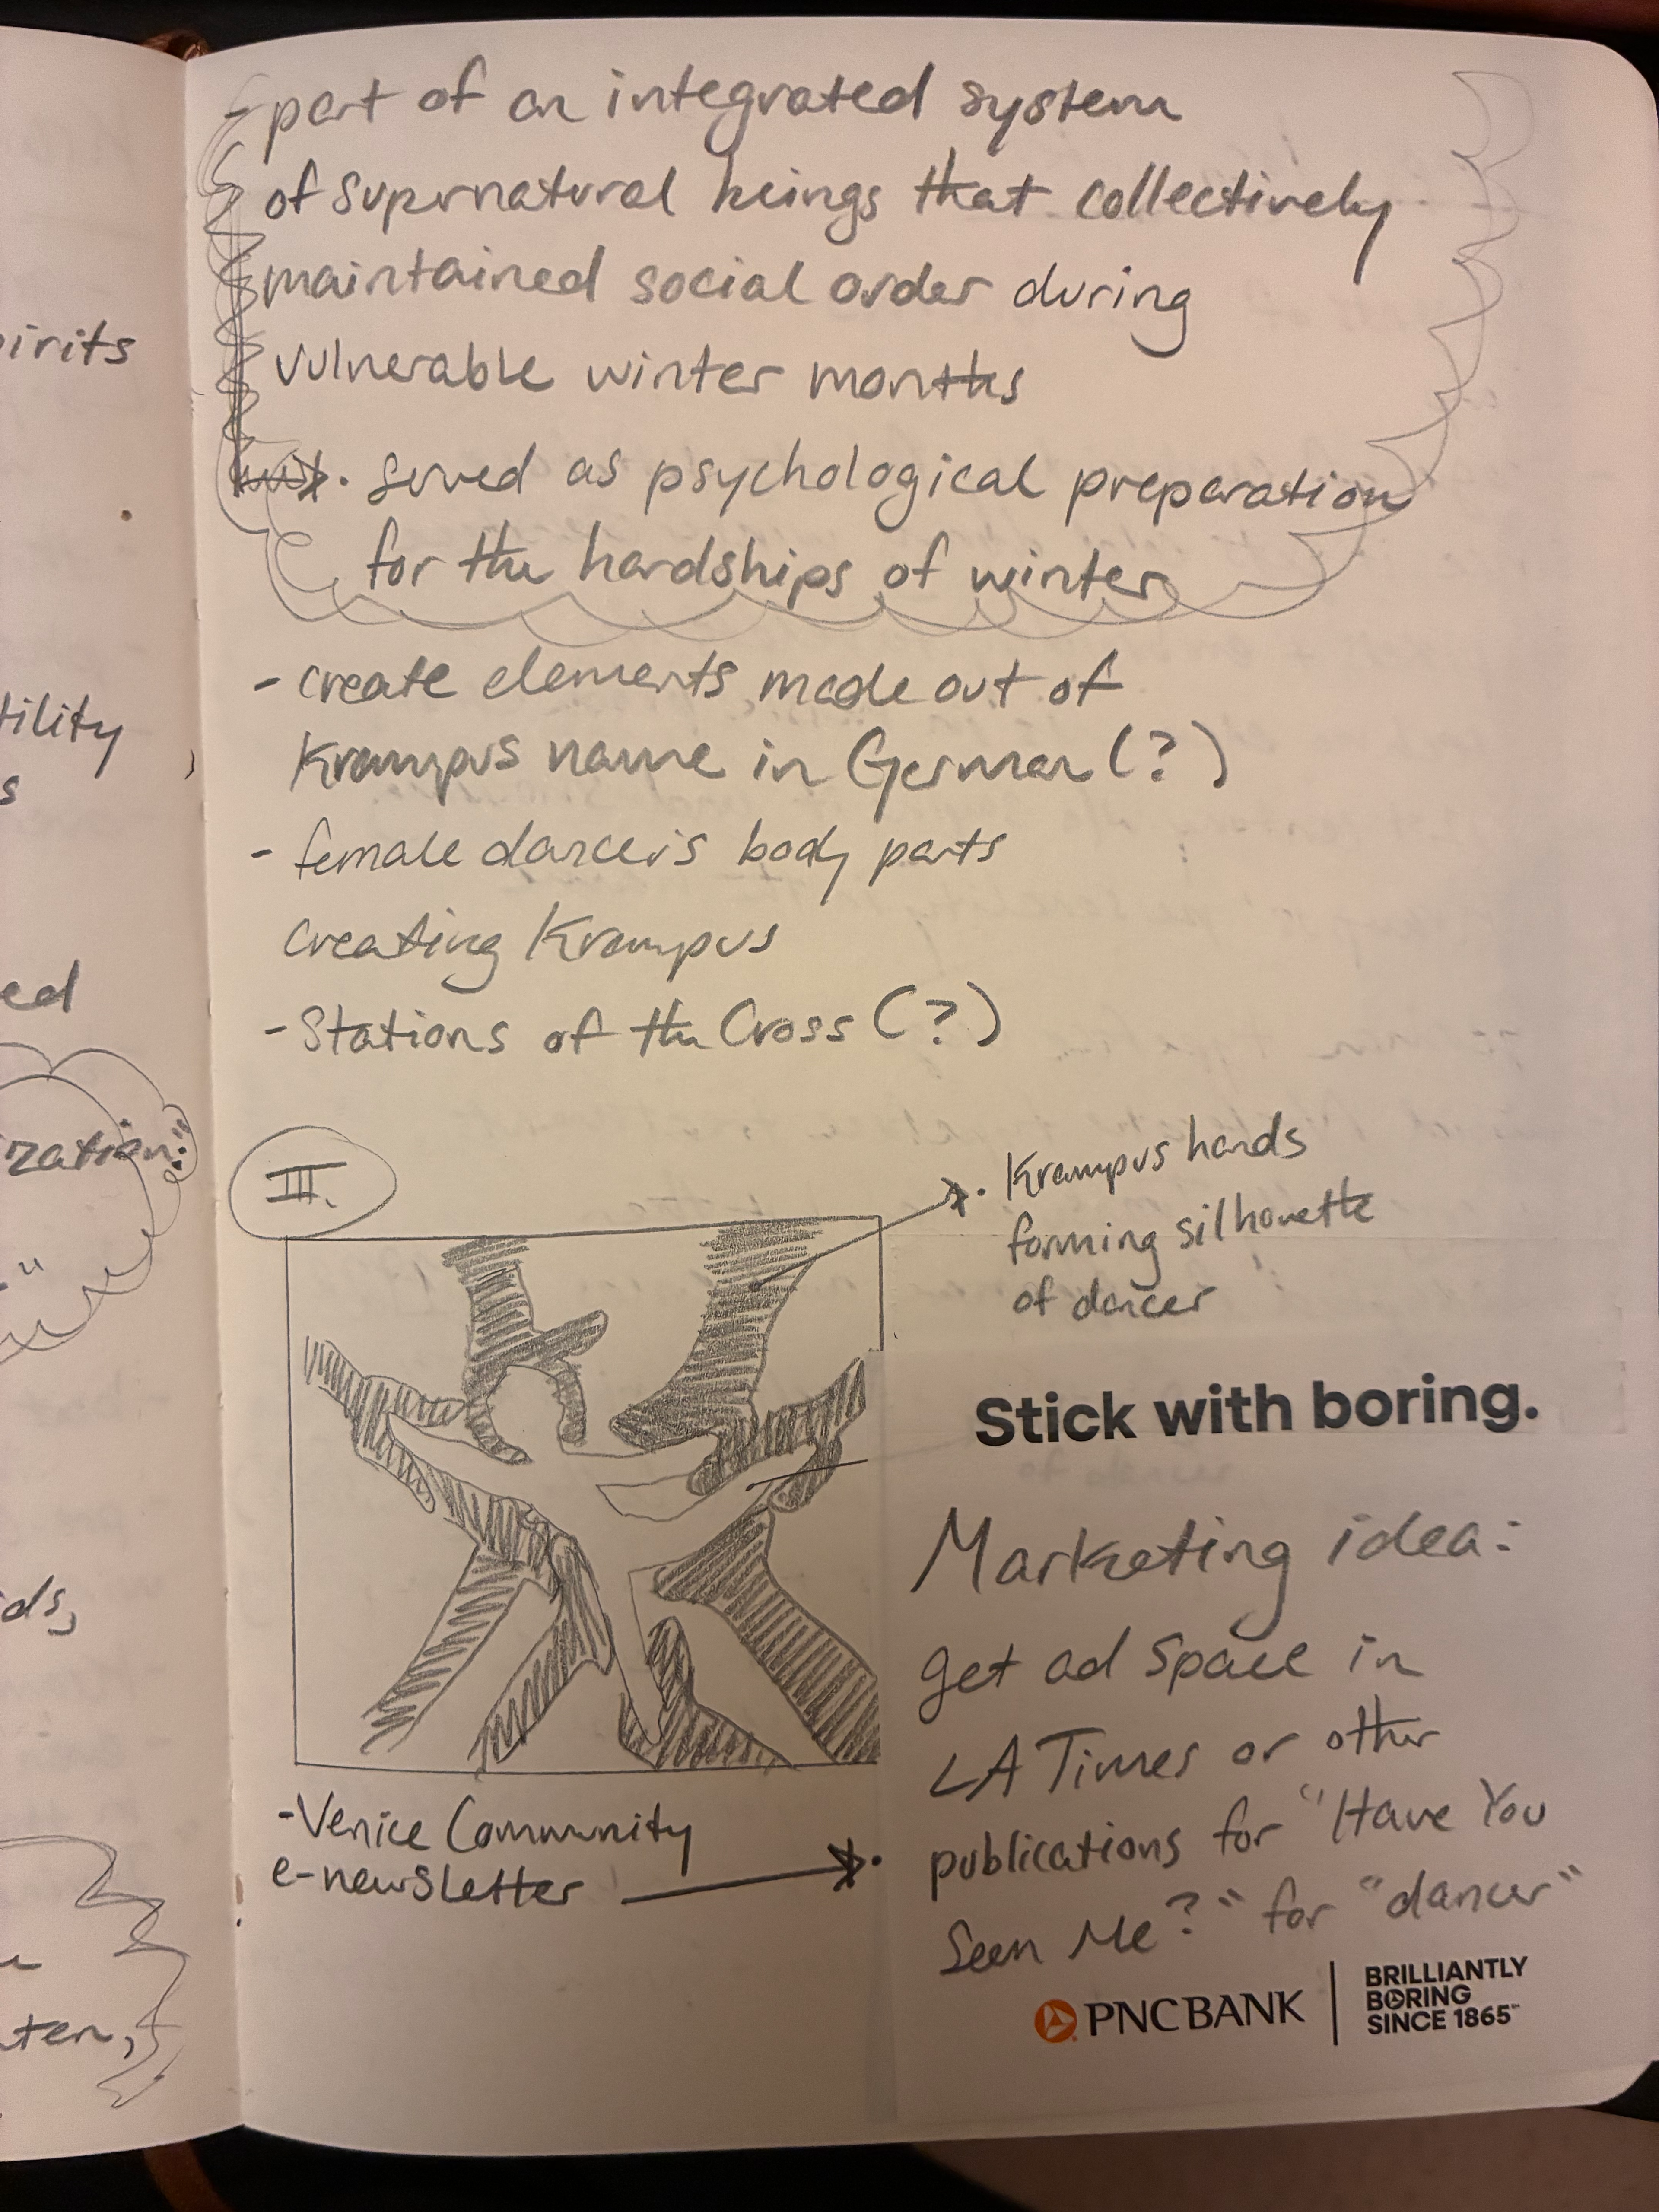 - part of an integrated system
of supernatural beings that collectively
maintained social order during
vulnerable winter months
• served as psychological preparation
for the hardships of winter
- create elements made out of
Krampus name in German (?)
- female dancer's body parts
creating Krampus
- Stations of the Cross (?)
III.
• Krampus hands
forming silhouette
of dancer
- Venice Community
e-newsletter
Stick with boring.
Marketing idea:
get ad space in
LA Times or other
• publications for "Have You
Seen Me?" for "dancer"
PNC BANK
BRILLIANTLY
BORING
SINCE 1865
irits
tility
s
ed
zation."
"
ds,
ten,